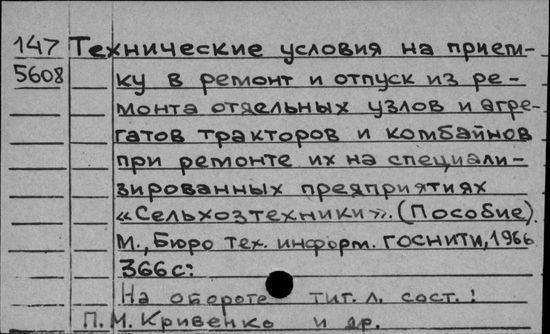 147 Технические условия на прием-
5608 ку в ремонт и отпуск из ре-
монта отдельных узлов и агре-
гатов тракторов и комбайнов
при ремонте их на специали-
зированных предприятиях
«Сельхозтехники». (Пособие).
М., Бюро тех. информ. ГОСНИТИ, 1966
366с:
На обороте тит. л. сост.:
П. М. Кривенко и др.